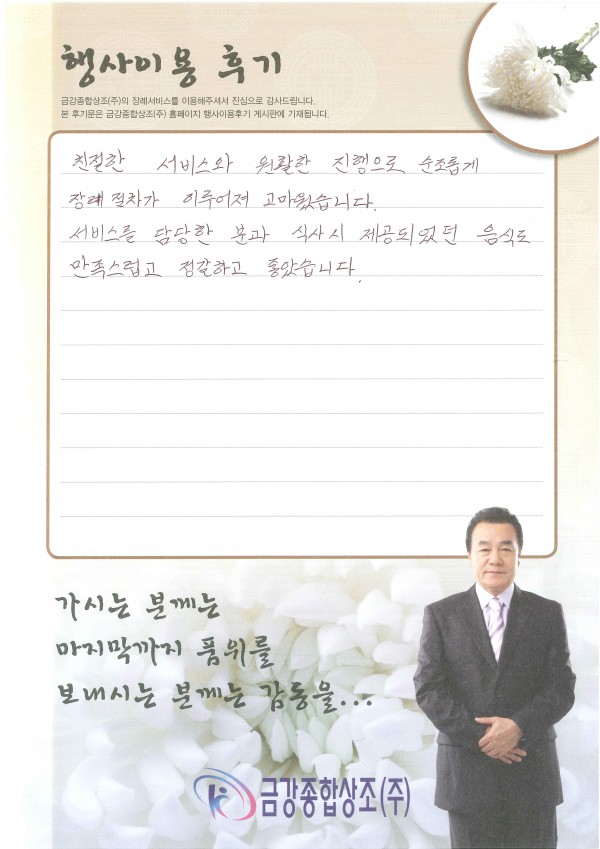 행사이용 후기
금강종합상조(주)의 장례서비스를 이용해주셔서 진심으로 감사드립니다.
본 후기문은 금강종합상조(주) 홈페이지 행사이용후기 게시판에 기재됩니다.
친절한 서비스와 원활한 진행으로 순조롭게
장례절차가 이루어져 고마웠습니다.
서비스를 담당한 분과 식사시 제공되었던 음식도
만족스럽고 정갈하고 좋았습니다.
가시는 분께는
마지막까지 품위를
보내시는 분께는 감동을...
금강종합상조(주)